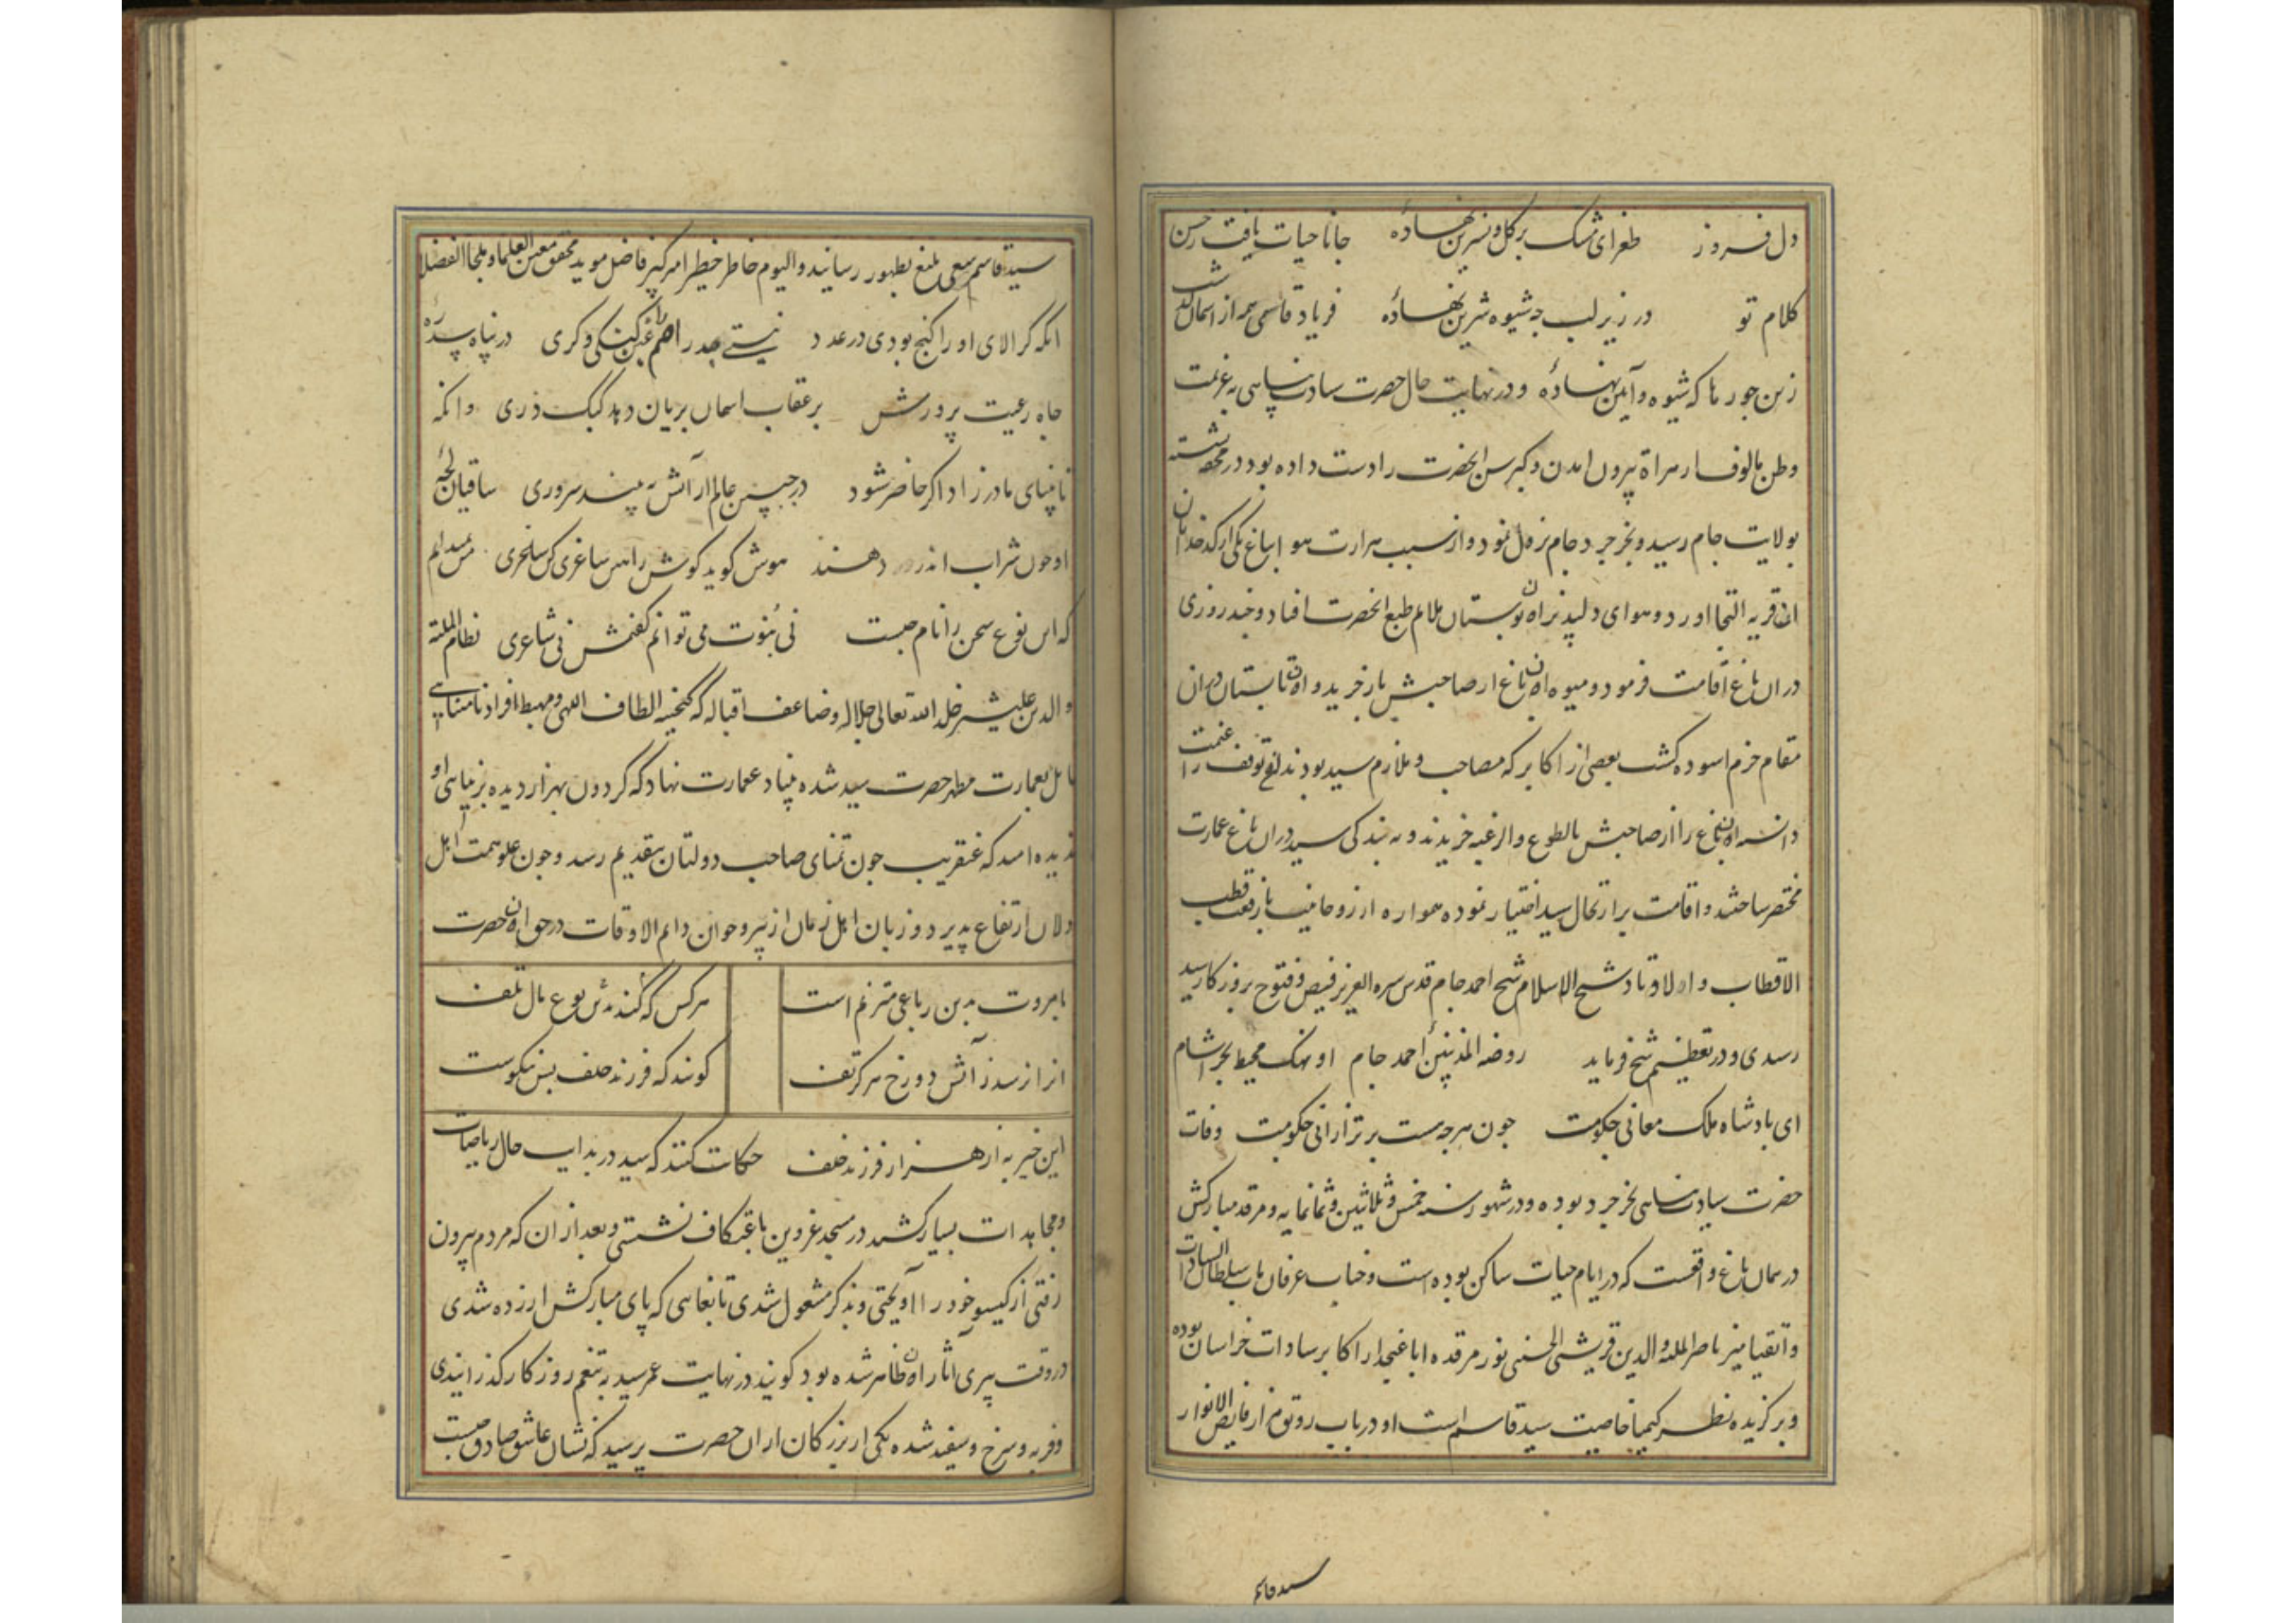 دل فروز طغرای مشک بر گل و نسرین نهاده جانا حیات یافت ز حسن
کلام تو در زیر لب چه شیوه شیرین نهاده فریاد قاسمی همه از آسمان گذشت
زین جورها که شیوه و آیین نهاده و در نهایت حال حضرت سیادت پناهی به عزیمت
وطن مالوف از هراة بیرون امدن و کبر سن انحضرت را دست داده بود در محفه نشسته
بولایت جام رسید و بخرجرد جام نزول نمود و از سبب حرارت هوا بباغ یکی از کدخدایان
ان قریه التجا اورد و هوای دلپذیر ان بوستان ملایم طبع انحضرت افتاد و چند روزی
در ان باغ اقامت فرمود و میوه ان باغ از صاحبش باز خرید و ان تابستان در ان
مقام خرم اسوده گشت بعضی از اکابر که مصاحب و ملازم سید بودند توقف را غنیمت
دانسته ان باغ را از صاحبش بالطوع والرغبه خریدند و به بندکی سید در ان باغ عمارت
مختصر ساختند و اقامت بر ارتحال سید اختیار نموده همواره از روحانیت با رفعت قطب
الاقطاب و اولاوتاد شیخ الاسلام شیخ احمد جام قدس سره العزیز فیض و فتوح بروزکار سید
رسیدی و در تعظیم شیخ فرماید روضه المذنبین احمد جام او نهنک محیط بحر اشام
ای بادشاه ملک معانی حکومت جون هرجه هست برتر از انی حکومت وفات
حضرت سیادت پناهی بخرجرد بوده و در شهور سنه خمس و ثلاثین و ثمانمایه و مرقد مبارکش
در همان باغ واقعست که در ایام حیات ساکن بوده است و جناب عرفان ماب سلطان السادات
و اتقیا میر ناصر الملة والدین قریشی الحسنی نور مرقده ابا عنجد از اکابر سادات خراسان بوده
و برکزیده نظر کیمیا خاصیت سید قاسم است او در باب رونق مزار فایض الانوار
سید قاسم
سید قاسم سعی بلیغ بظهور رسانید و الیوم خاطر خطیر امیر کبیر فاضل موید محقق معین العلما و ملجا الفضلا
انکه کر الای او را کنج بودی در عدد نیستی جذر اصم را غبن کنکی و کری در پناه سده
جاه رعیت پرورش بر عقاب اسمان بریان دهد کبک دری وانکه
نابینای مادرزاد اکر حاضر شود در جبین عالم ارایش به بیند سروری ساقیان لجه
او جون شراب اندر دهند هوش کوید کوش را هین ساغری کن ساغری من ندانم
که این نوع سخن را نام چیست نی نبوت می توانم کفتنش نی شاعری نظام الملة
والدین علیشیر خلد الله تعالی جلاله و ضاعف اقباله که کنجینه الطاف اللهی و مهبط افراد نامتناهی
مایل بعمارت مطهر حضرت سید شده بنیاد عمارت نهاد که کردون بهزار دیده بزیبایی او
ندیده امید که عنقریب جون تمنای صاحب دولتان بتقدیم رسد و جون علو همت اهل
دلان ارتفاع پذیرد و زبان اهل زمان از پیر و جوان دایم الاوقات در حق ان حضرت
بامروت بدین رباعی مترنم است هرکس که کند بدین نوع مال تلف
انرا نرسد ز آتش دوزخ هرکز تف کویند که فرزند خلف بس نیکوست
این خیر به از هزار فرزند خلف حکایت کنند که سید در بدایت حال ریاضیات
و مجاهدات بسیار کشید در مسجد قزوین باعتکاف نشستی و بعد از ان که مردم بیرون
رفتی از کیسو خود را آویختی و بذکر مشغول شدی تا بغایی که پای مبارکش ازرده شدی
در وقت پیری آثار ان ظاهر شده بود کویند در نهایت عمر سید بتنعم روزکار کذرانیدی
و فربه و سرخ و سفید شده یکی از بزرکان از ان حضرت پرسید که نشان عاشق صادق چیست